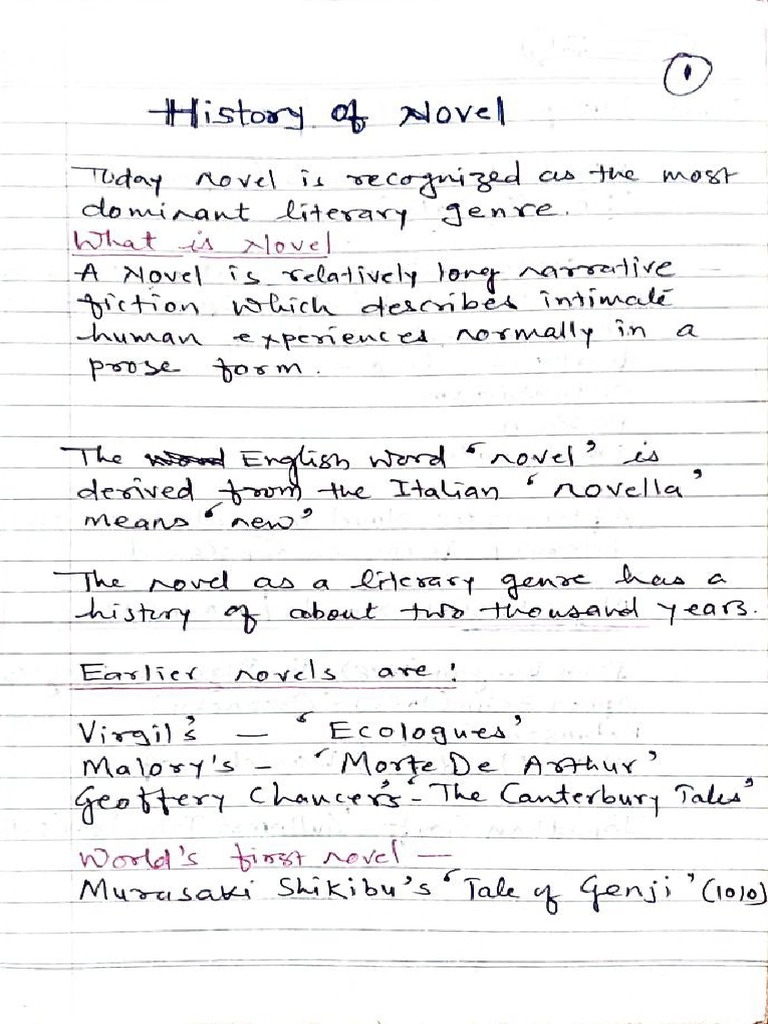 1
History of Novel
Today novel is recognized as the most
dominant literary genre.
What is Novel
A Novel is relatively long narrative
fiction which describes intimate
human experiences normally in a
prose form.
The word English word 'novel' is
derived from the Italian 'novella'
means 'new'
The novel as a literary genre has a
history of about two thousand years.
Earlier novels are:
Virgil's — 'Ecologues'
Malory's - 'Morte De Arthur'
Geoffery Chaucer's - 'The Canterbury Tales'
World's first novel —
Murasaki Shikibu's 'Tale of Genji' (1010)